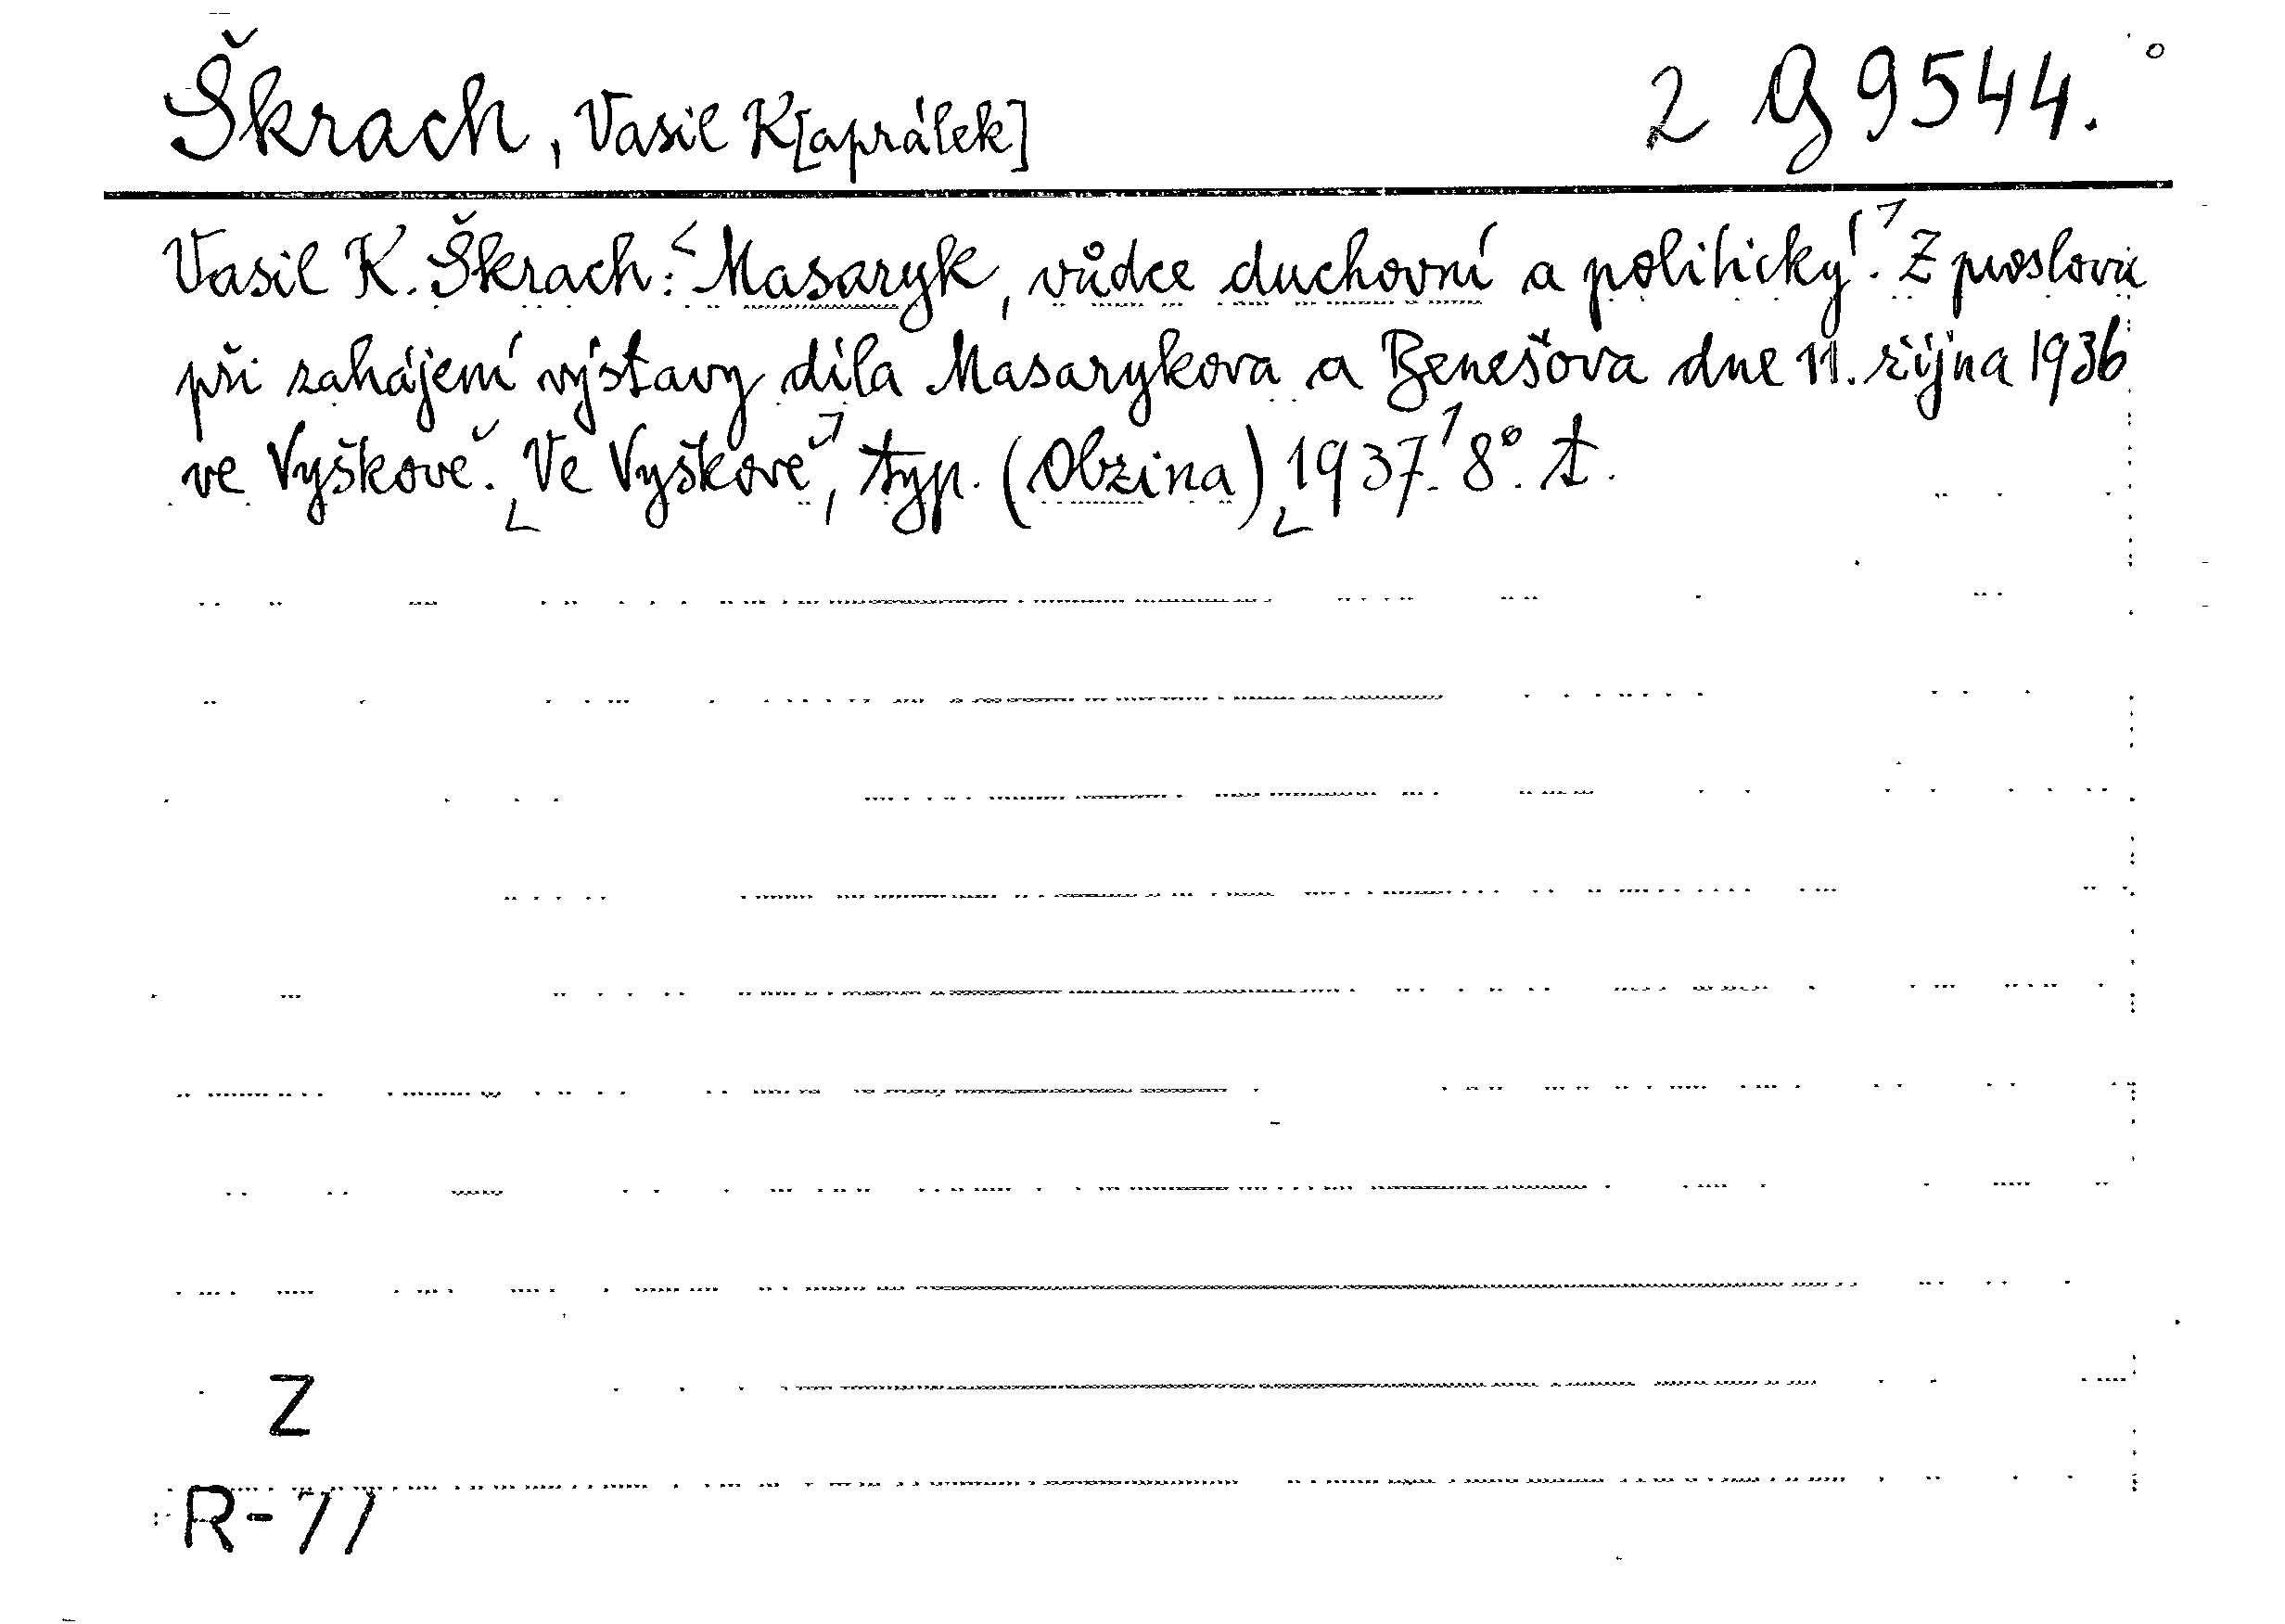 Škrach, Vasil K[aprálek] 2 G 9544.
Vasil K. Škrach: Masaryk, vůdce duchovní a politický. Z proslovu
při zahájení výstavy díla Masarykova a Benešova dne 11. října 1936
ve Vyškově. Ve Vyškově, typ. (Obzina) 1937. 8°. t.
Z
R-77